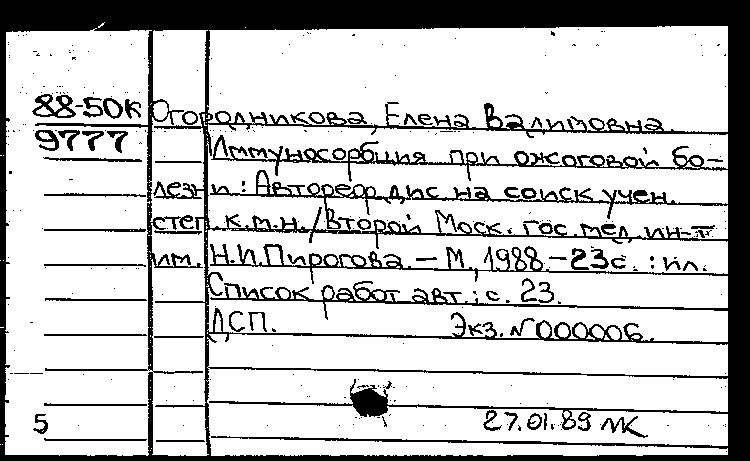 88-50к Огородникова, Елена Вадимовна.
9777 Иммуносорбция при ожоговой бо-
лезни: Автореф. дис. на соиск. учен.
степ. к.м.н. / Второй Моск. гос. мед. ин-т
им. Н.И. Пирогова. — М., 1988. — 23с. : ил.
Список работ авт.: с. 23.
ДСП. Экз. N 000006.
5 27.01.89 МК